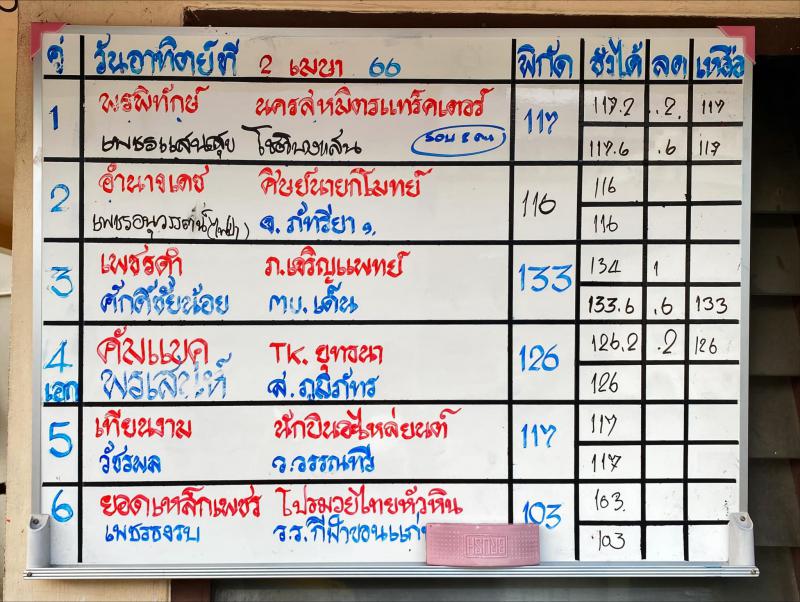 คู่ วันอาทิตย์ที่ 2 เมษา 66 พิกัด ชั่งได้ ลด เหลือ
1 พรพิทักษ์ นครสหมิตรแทร็คเตอร์ 117 117.2 .2 117
เพชรแสนสุข 117.6 .6 117
2 อำนาจเดช ศิษย์นายกโมทย์ 116 116
เพชรอนุวรรตน์ จ. ภัทรียา 116
3 เพชรดำ ภ.เจริญแพทย์ 133 134 1
ศักดิ์ชัยน้อย ฅบ.เด็น 133.6 .6 133
4 คัมแบค TK. ยุทธนา 126 126.2 .2 126
เอก พรเสน่ห์ ส.ภูมิภัทร 126
5 เทียนงาม นักบินอะไหล่ยนต์ 117 117
วัชรพล ว.วรรณทวี 117
6 ยอดเหล็กเพชร โปรมวยไทยหัวหิน 103 103
เพชรธงรบ ร.ร.กีฬาขอนแก่น 103
BRUSH